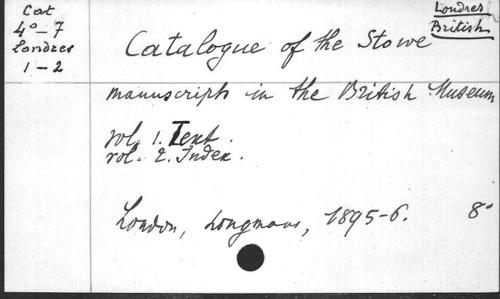 Cat
4° - 7
Londres
1 - 2
Londres
British
Catalogue of the Stowe
manuscripts in the British Museum
vol. 1. Text.
vol. 2. Index.
London, Longmans, 1895-6. 8°